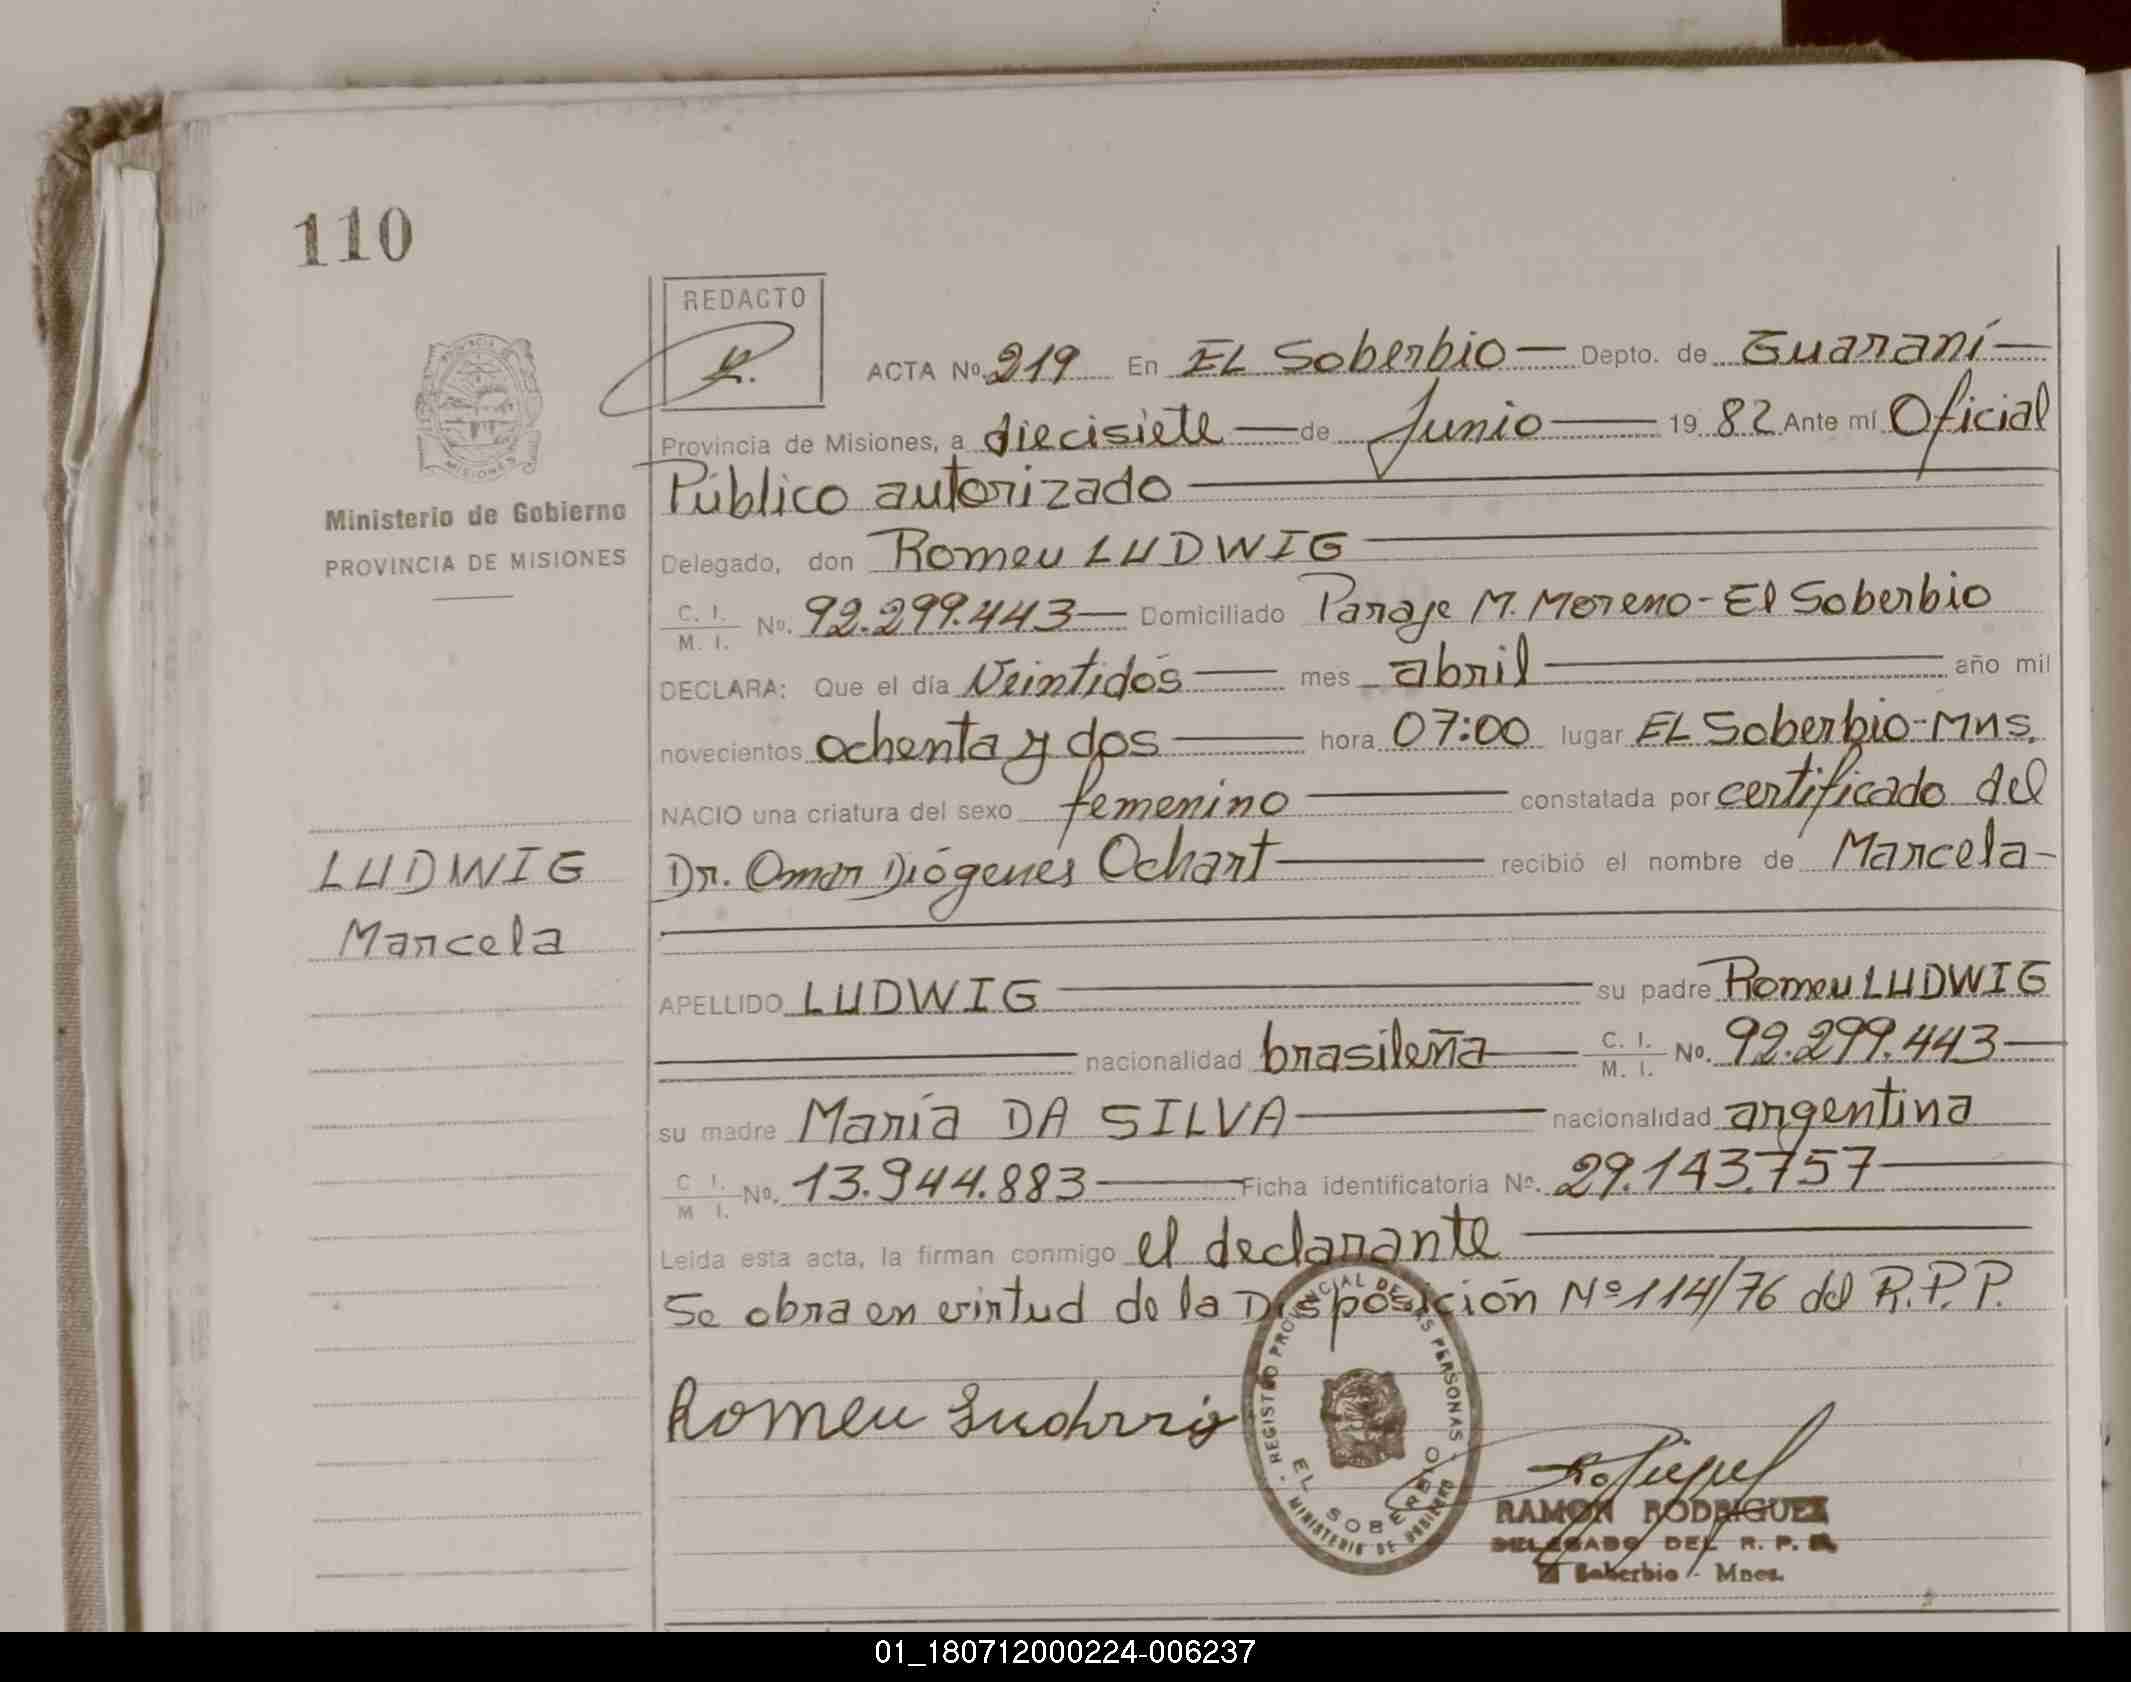 110
REDACTO
ACTA Nº 219 En EL Soberbio — Depto. de Guaraní —
Provincia de Misiones, a diecisiete — de Junio — 19 82 Ante mí Oficial
Público autorizado
Delegado, don Romeu LUDWIG
C. I.
M. I. Nº. 92.299.443 — Domiciliado Paraje M. Moreno - El Soberbio
DECLARA: Que el día Veintidós — mes abril — año mil
novecientos ochenta y dos — hora 07:00 lugar EL Soberbio - Mns.
NACIO una criatura del sexo femenino — constatada por certificado del
Dr. Omar Diógenes Ochart — recibió el nombre de Marcela -
APELLIDO LUDWIG — su padre Romeu LUDWIG
nacionalidad brasileña — C. I.
M. I. Nº. 92.299.443 —
su madre María DA SILVA — nacionalidad argentina
C. I.
M. I. Nº. 13.944.883 — Ficha identificatoria Nº. 29.143.757 —
Leída esta acta, la firman conmigo el declarante
Se obra en virtud de la Disposición Nº 114/76 del R.P.P.
Romeu Ludwig
PROVINCIA
MISIONES
Ministerio de Gobierno
PROVINCIA DE MISIONES
LUDWIG
Marcela
REGISTRO PROVINCIAL DE LAS PERSONAS
EL SOBERBIO
MINISTERIO DE GOBIERNO
RAMON RODRIGUEZ
DELEGADO DEL R. P. P.
El Soberbio - Mnes.
01_180712000224-006237